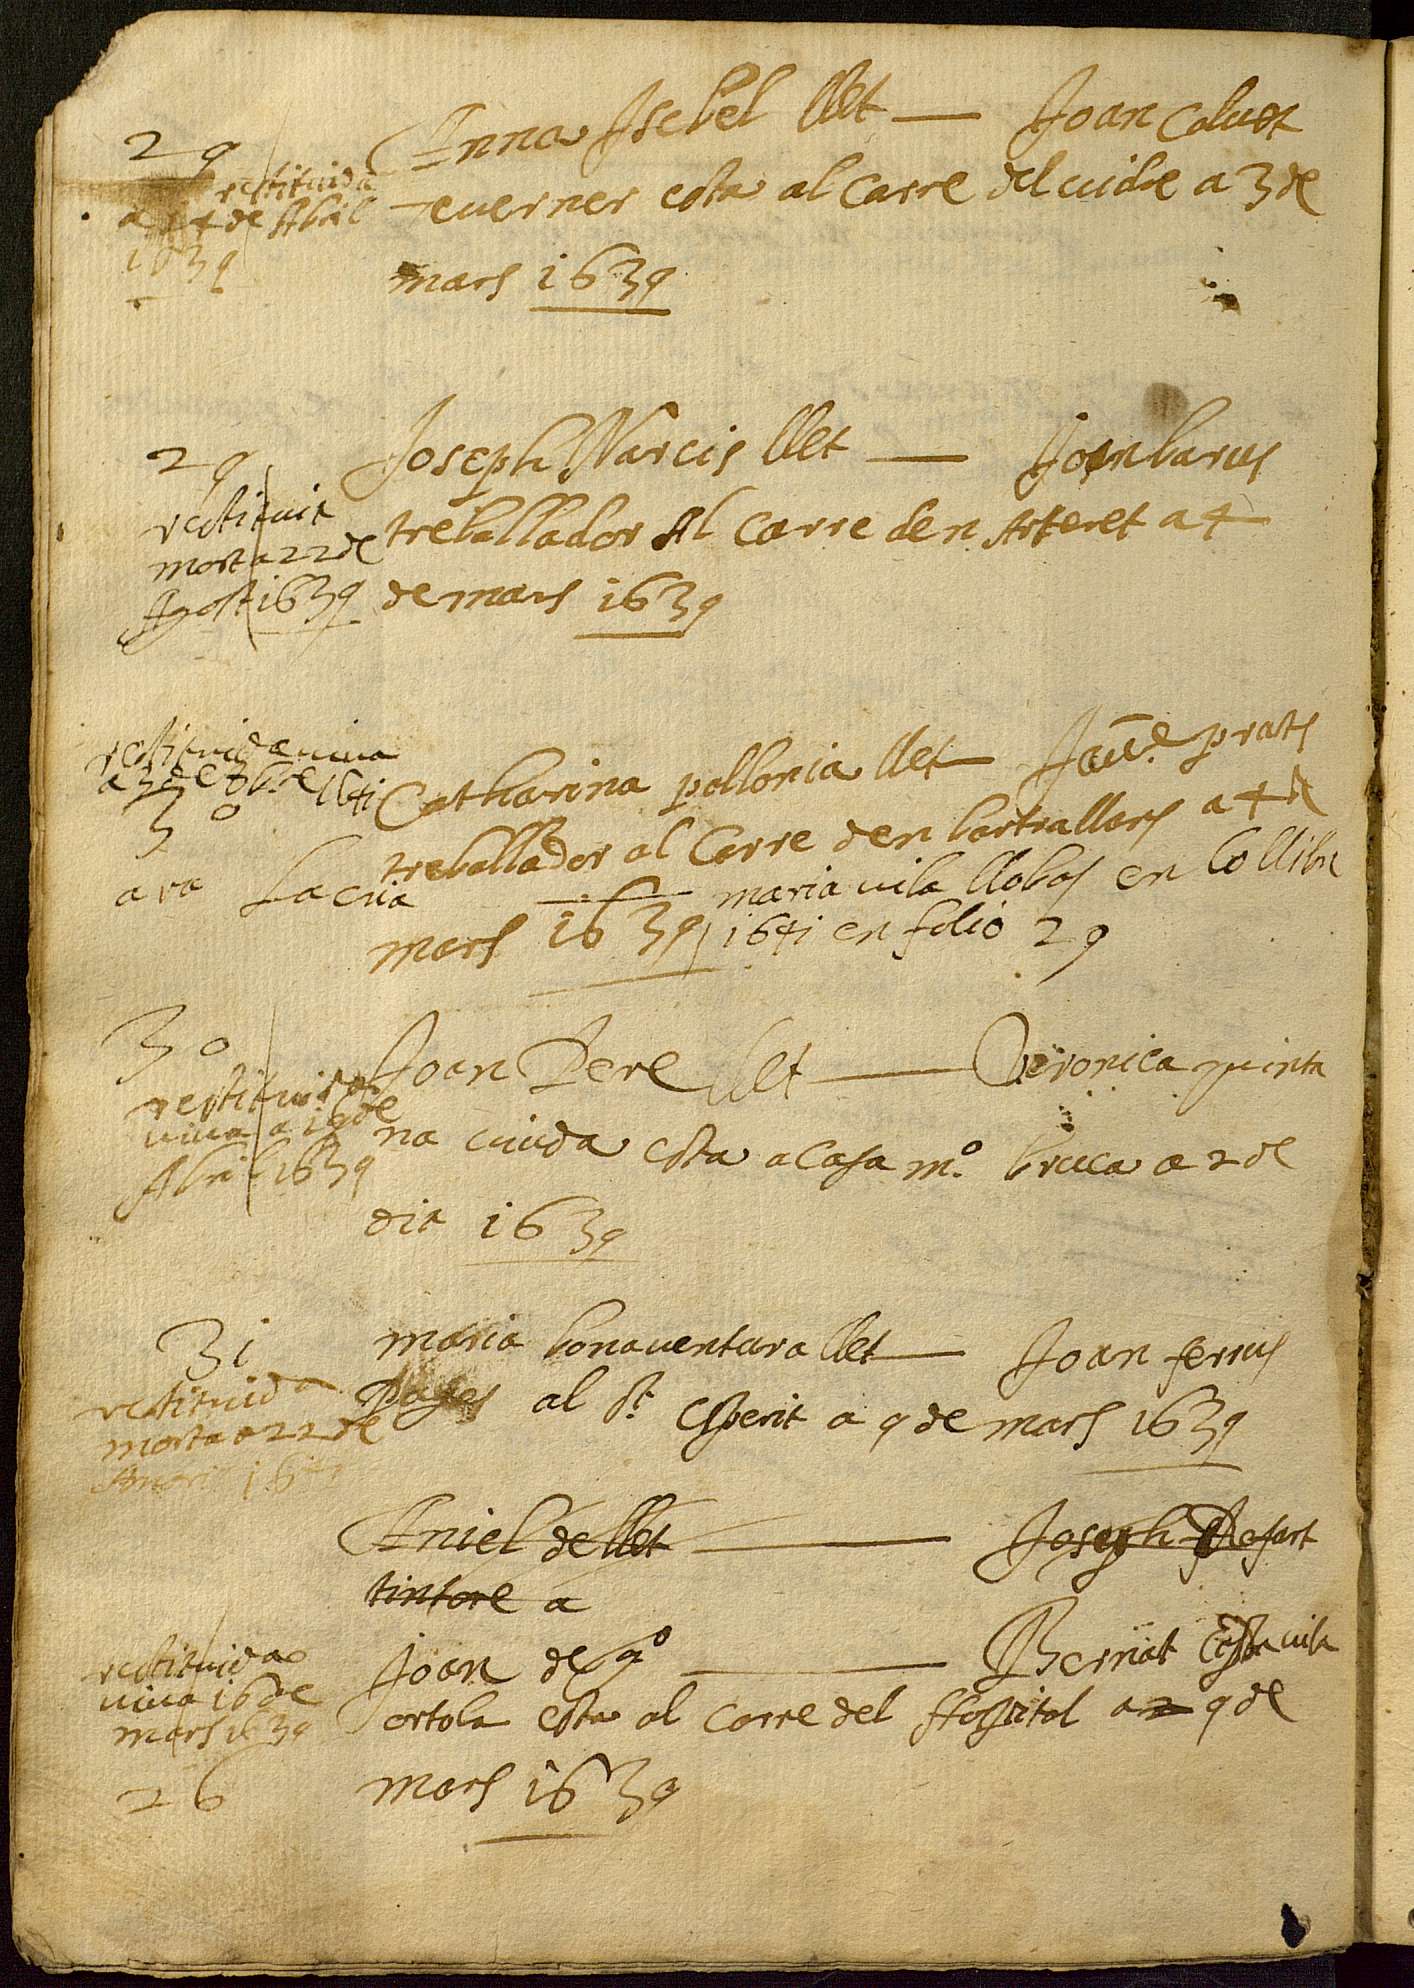 29
restituida
a 14 de Abril
1639
Anna Isebel llet — Joan Caluet
teuerner esta al Carre del uidre a 3 de
mars 1639
29
restituit
mort a 22 de
Agost 1639
Joseph Narcis llet — Joan barus
treballador Al Carre den Arteret a 4
de mars 1639
restituida uiua
a 3 de 8bre 1641
30
Catharina pollonia llet — Jaue. prats
treballador al Carre den bortrallars a 4 d
ara La cria — maria uila llobas en lo llibre
mars 1639, 1641 en folio 29
30
restituida
uiua a 19 de
Abril 1639
Joan Pere llet — Veronica quinta
na uiuda esta a casa mº. bruca a 2 de
dit 1639
31
restituida
morta a 22 de
Maria bonauentura llet — Joan ferrus
Pages al St. Esperit a 9 de mars 1639
Aniel de llet — Joseph Rosart
tintore a
restituida
uiua 16 de
mars 1639
26
Joan de qº — Bernat Casta uila
ortola esta al Carre del Hospital a 9 de
mars 1639